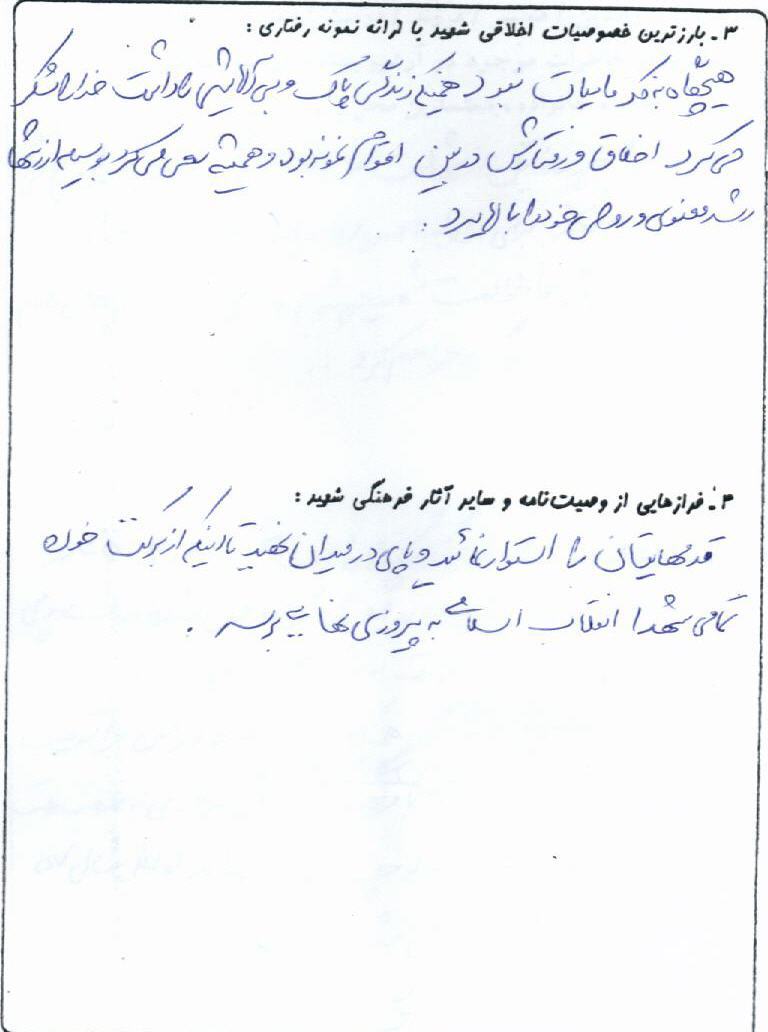 ۳ـ بارزترین خصوصیات اخلاقی شهید با ارائه نمونه رفتاری :
هیچگاه به فکر مادیات نبود همینکه زندگی پاک و بی آلایشی را داشت خدا را شکر
می کرد اخلاق و رفتارش در بین اقوام نمونه بود و همیشه سعی می کرد بوسیله
رشد معنوی و روحی خود را بالا ببرد .
۴ـ فرازهایی از وصیت‌نامه و سایر آثار فرهنگی شهید :
قدمهایتان را استوار نمائید و پای در میدان نهید تا اینکه از برکت خون
تمامی شهدا انقلاب اسلامی به پیروزی نهایی برسد .